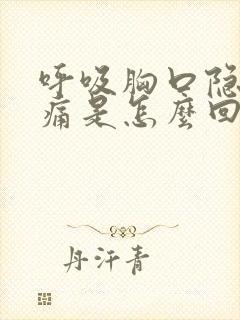 呼吸胸口隐
痛是怎麼回
丹汗青